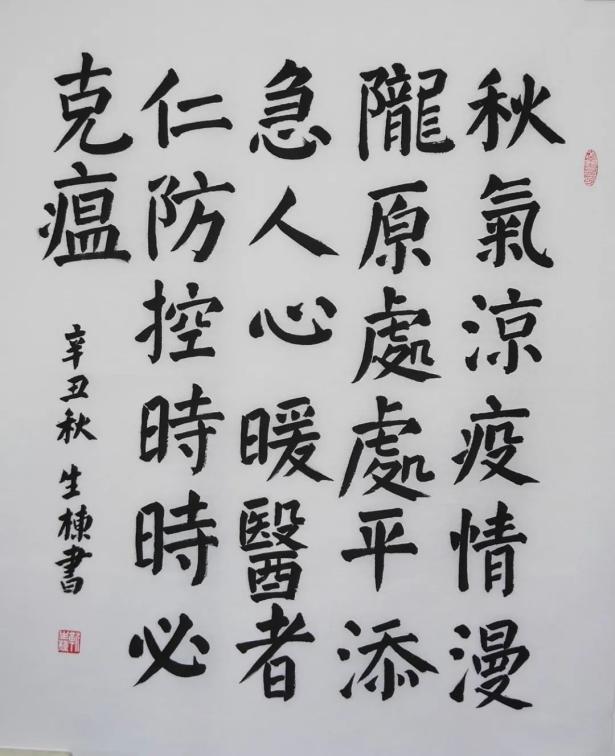 秋氣涼疫情漫
隴原處處平添
急人心暖醫者
仁防控時時必
克瘟
辛丑秋 生棟書